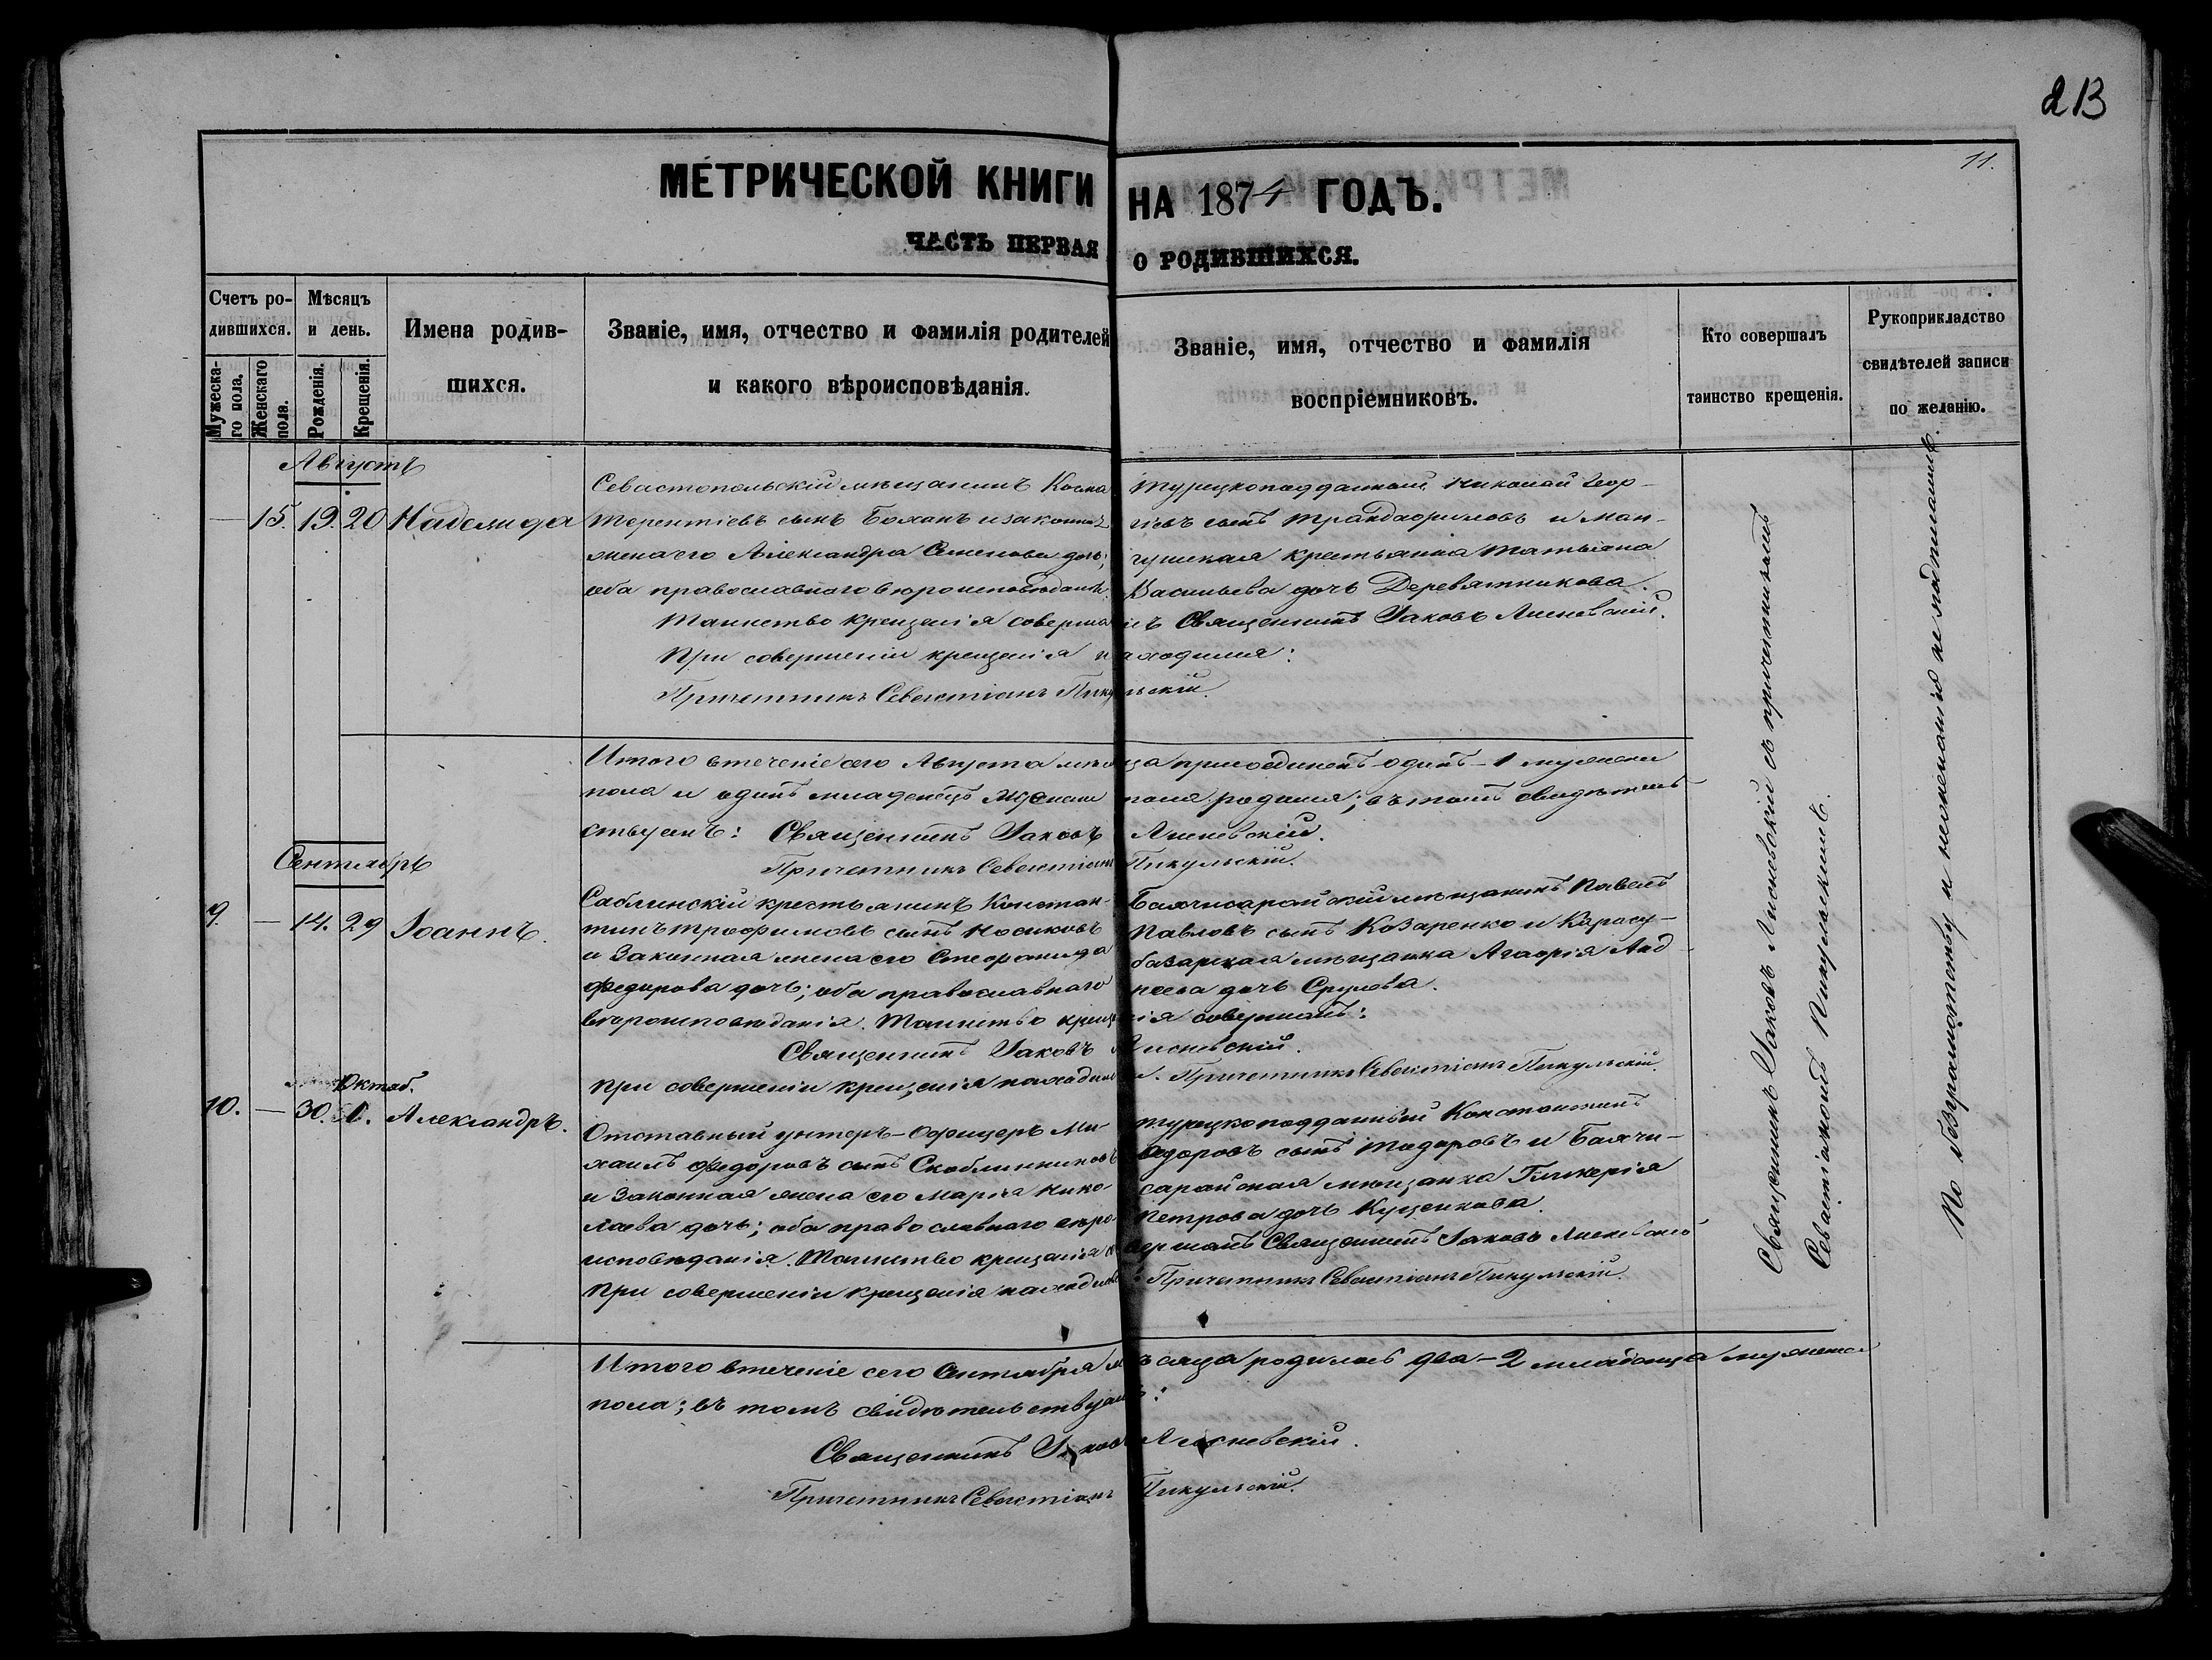 213
11.
МЕТРИЧЕСКОЙ КНИГИ НА 1874 ГОДЪ.
ЧАСТЬ ПЕРВАЯ О РОДИВШИХСЯ.
Счетъ родившихся.
Мужескаго пола.
Женскаго пола.
Мѣсяцъ и день.
Рожденія.
Крещенія.
Имена родившихся.
Званіе, имя, отчество и фамилія родителей
и какого вѣроисповѣданія.
Званіе, имя, отчество и фамилія
воспріемниковъ.
Кто совершалъ
таинство крещенія.
Рукоприкладство
свидѣтелей записи
по желанію.
Августъ
— 15. 19. 20
Севастопольскій мѣщанинъ Косма
Терентіевъ сынъ Боханъ и законная
жена его Александра Семенова дочь;
оба православнаго вѣроисповѣданія.
Турецкоподданный Николай Геор-
гіевъ сынъ Трандафиловъ и Ман-
гушская крестьянка Татьяна
Васильева дочь Деревятникова.
Таинство крещенія совершалъ Священникъ Іаковъ Лисневскій.
При совершеніи крещенія находился:
Причетникъ Севастіанъ Пикульскій.
Итого втеченіе сего Августа мѣсяца присоединенъ одинъ - 1 мужеска
пола и одинъ младенецъ женска пола родился; въ томъ свидѣтель-
ствуемъ: Священникъ Іаковъ Лисневскій.
Причетникъ Севастіанъ Пикульскій.
Сентябрь
9. — 14. 29 Іоаннъ.
Саблинскій крестьянинъ Констан-
тинъ Трофимовъ сынъ Носиковъ
и законная жена его Стефанида
Федорова дочь; оба православнаго
вѣроисповѣданія. Таинство крещенія совершалъ:
Бахчисарайскій мѣщанинъ Павелъ
Павловъ сынъ Козаренко и Карасу-
базарская мѣщанка Агафія Анд-
реева дочь
Священникъ Іаковъ Лисневскій.
При совершеніи крещенія находился. Причетникъ Севастіанъ Пикульскій.
Октяб.
10. — 30. 1. Александръ.
Отставный унтеръ-Офицеръ Ми-
хаилъ Федоровъ сынъ Скоблинниковъ
и законная жена его Марія Нико-
лаева дочь; оба православнаго вѣро-
исповѣданія. Таинство крещенія совершалъ Священникъ Іаковъ Лисневскій
Турецкоподданный Константинъ
Тодоровъ сынъ Тодоровъ и Бахчи-
сарайская мѣщанка Гликерія
Петрова дочь Куценкова.
При совершеніи крещенія находился: Причетникъ Севастіанъ Пикульскій.
Итого втеченіе сего Сентября мѣсяца родилось два - 2 младенца мужеска
пола; въ томъ свидѣтельствуемъ:
Священникъ Іаковъ Лисневскій.
Причетникъ Севастіанъ Пикульскій.
Священникъ Іаковъ Лисневскій съ причетникомъ
Севастіаномъ Пикульскимъ.
По безграмотству и нежеланію не подписались.